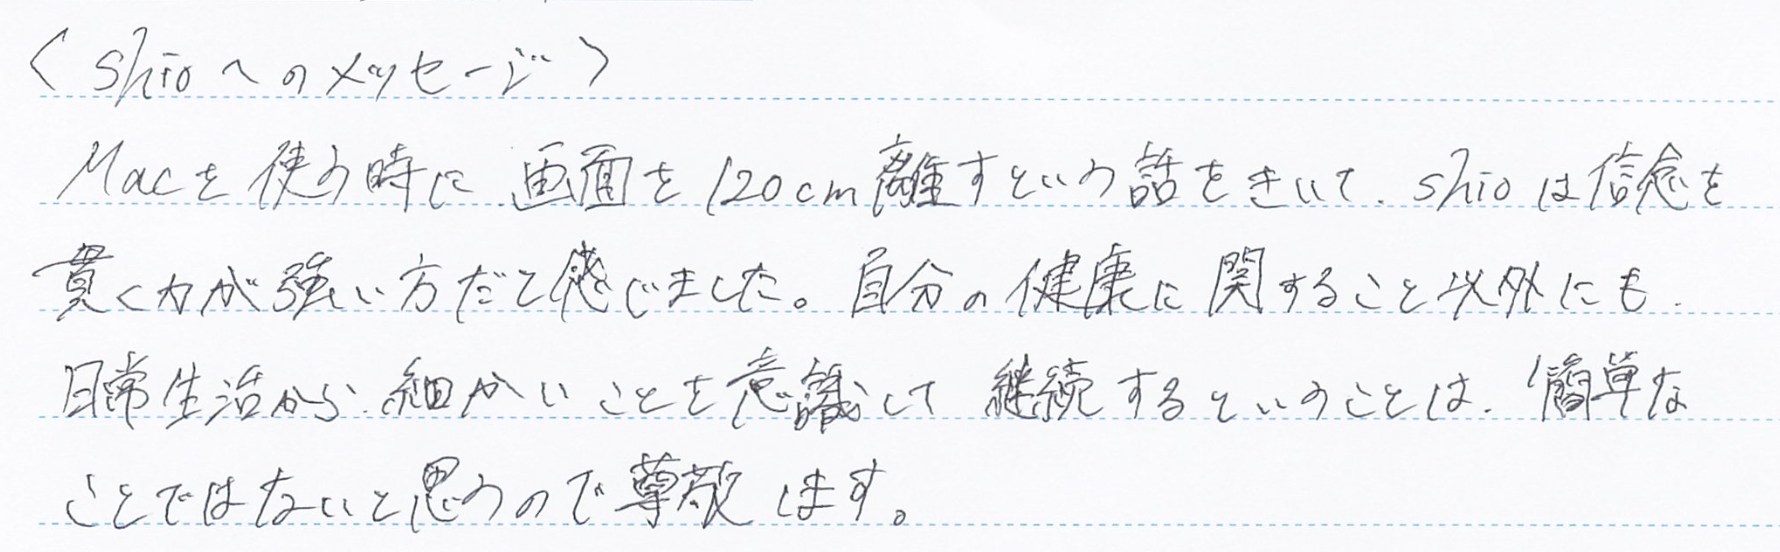 〈shioへのメッセージ〉
Macを使う時に、画面を120cm離すという話をきいて、shioは信念を
貫く力が強い方だと感じました。自分の健康に関すること以外にも、
日常生活から、細かいことを意識して継続するということは、簡単な
ことではないと思うので尊敬します。